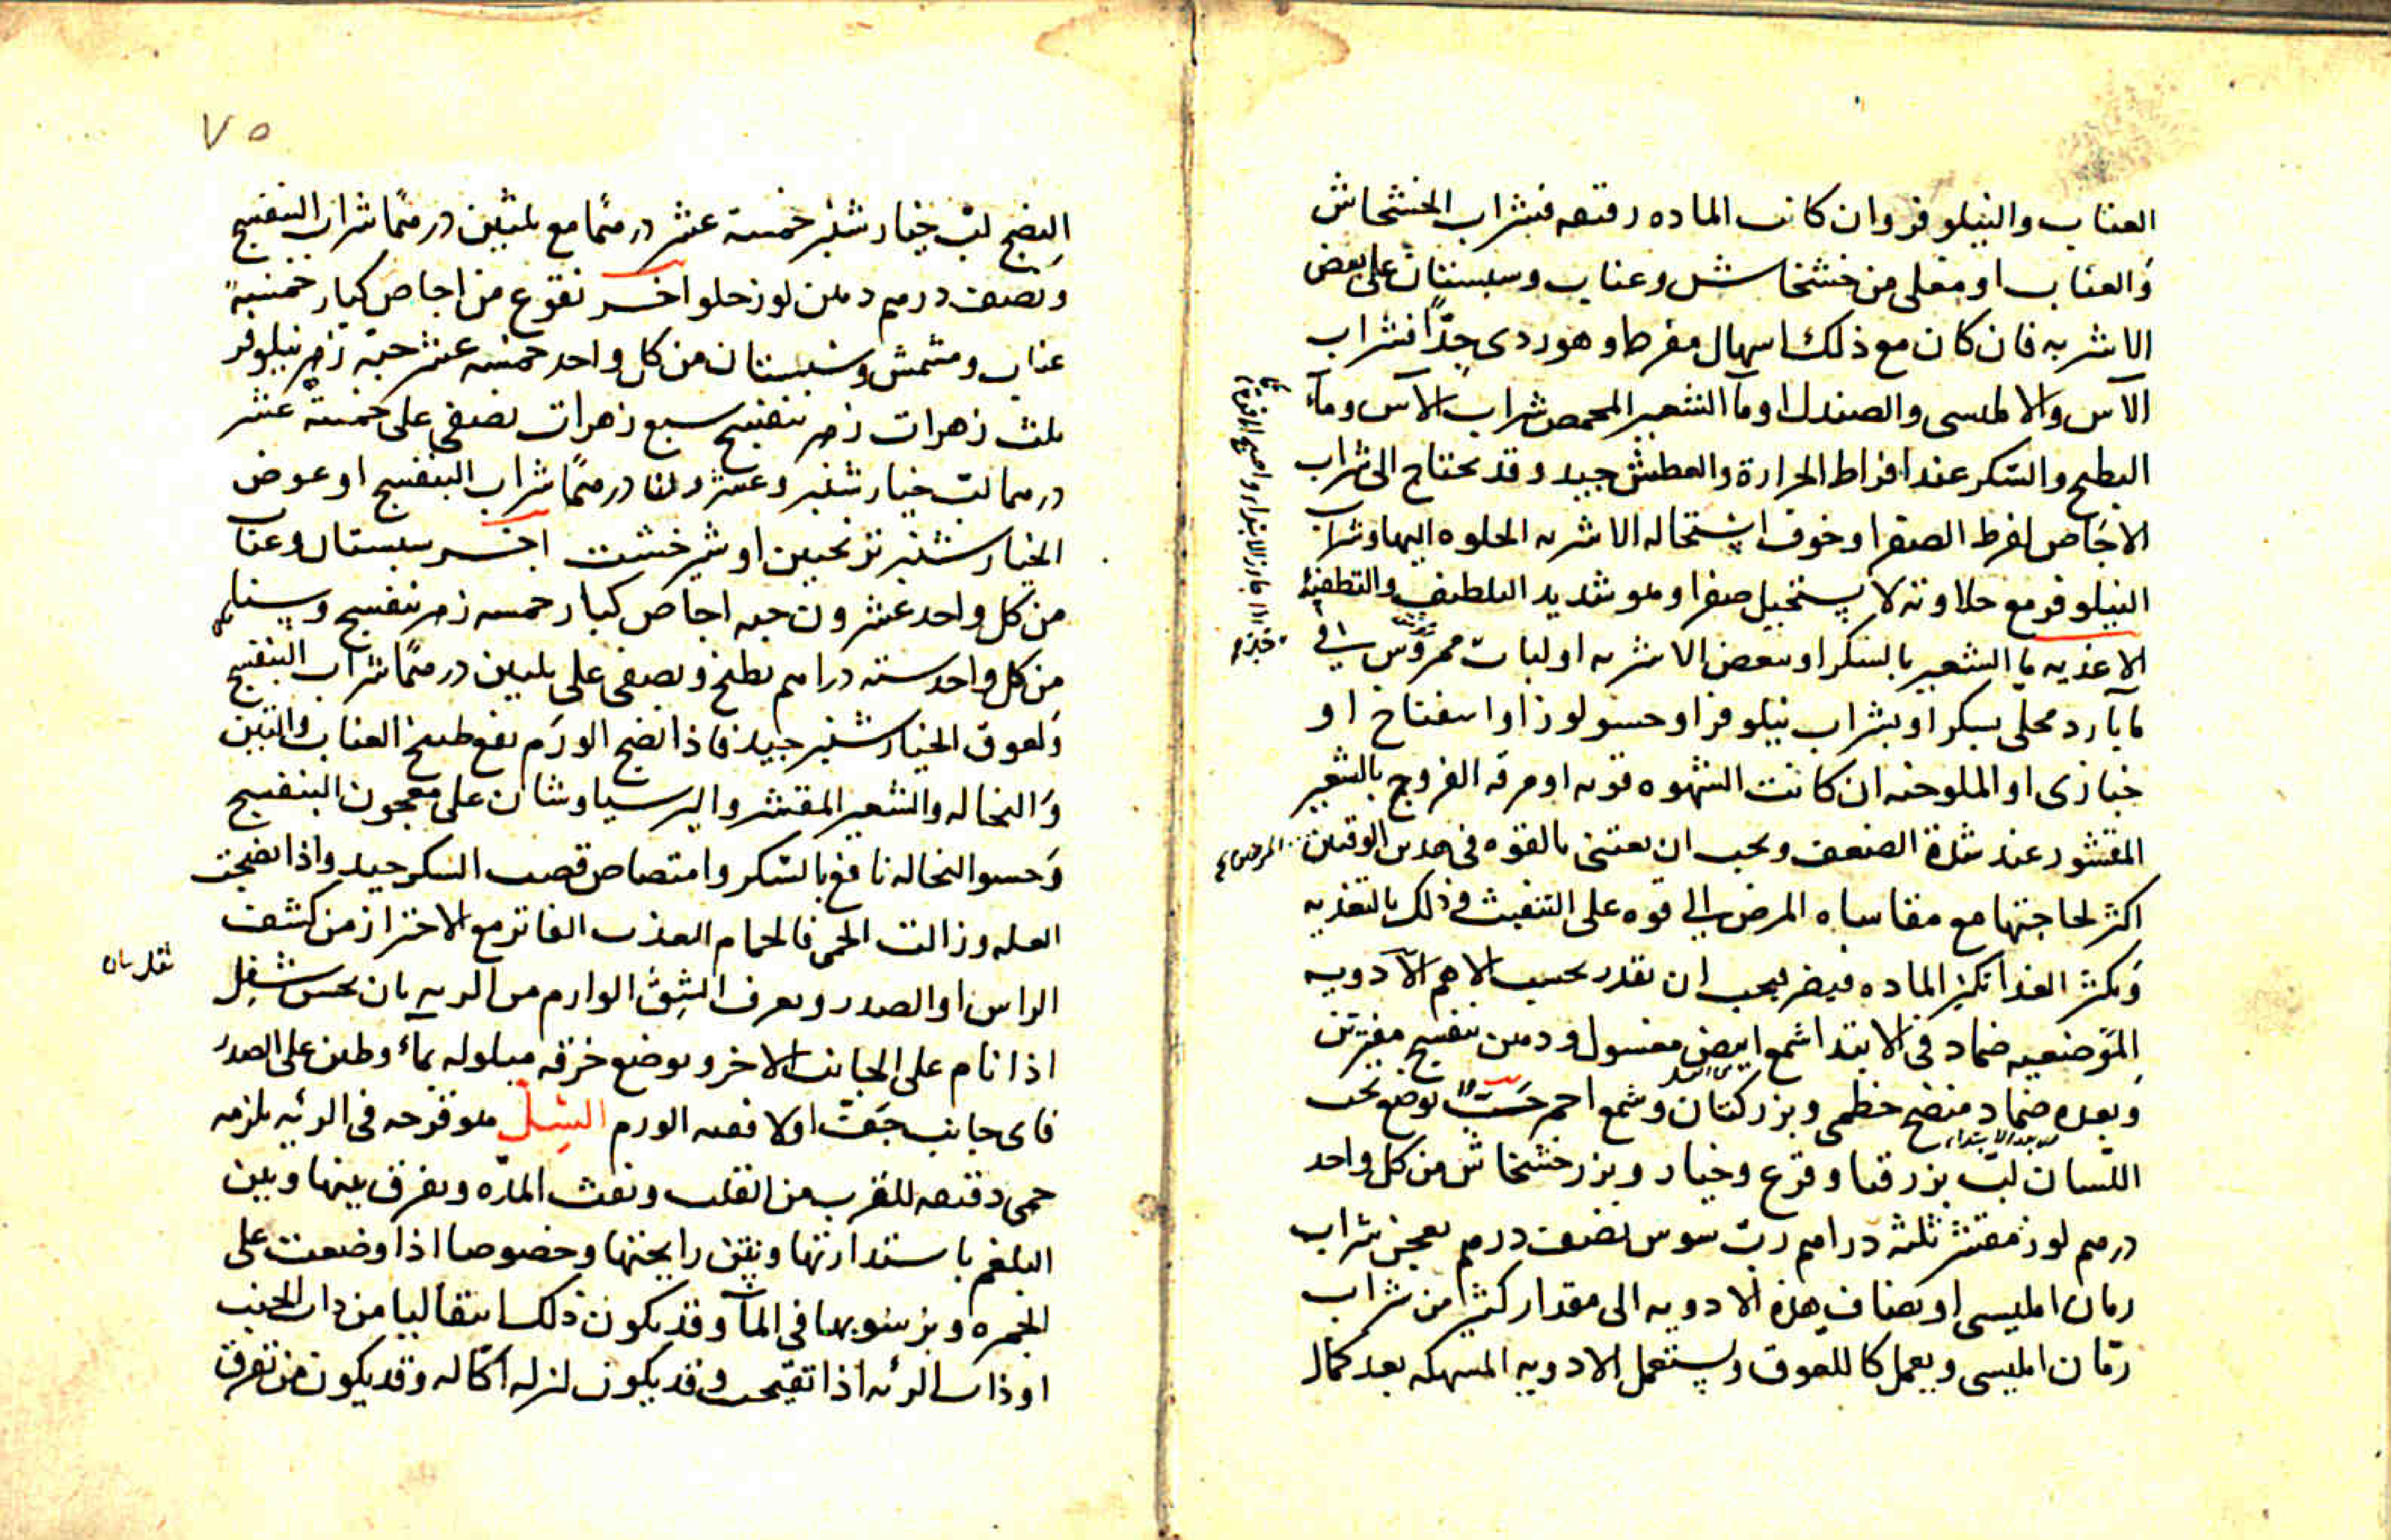 العناب والنيلوفر وان كانت الماده رقيقه فبشراب الخشخاش
والعناب او مغلى من خشخاش وعناب وسبستان على بعض
الاشربه فان كان مع ذلك اسهال مفرط وهو ردى جدًا فشراب
الآس والامليسى والصندل او مآ الشعير المحمص شراب الآس ومآء
البطيخ والسكر عند افراط الحرارة والعطش جيد وقد يحتاج الى شراب
الاجاص لفرط الصفرا وخوف استحاله الاشربه الحلوه اليها وشراب
النيلوفر مع حلاوته لا يستحيل صفرا وهو شديد التلطيف والتطفئه
الاغذيه مآ الشعير بالسكر او ببعض الاشربه او لباب ممروس فى
مآ بارد محلى بسكر او بشراب نيلوفر او حسو لوز او اسفناخ او
خبازى او الملوخيه ان كانت الشهوه قويه او مرقه الفروج بالشعير
المقشور عند شدة الضعف ويجب ان يعتنى بالقوه فى هدين الوقتين
اكثر لحاجتها مع مقاساه المرض الى قوه على التنفيث وذلك بالتغذيه
وتكثر الغذا تكثر الماده فيضر فيجب ان يقدر بحسب الاهم الادويه
الموضعيه ضماد فى الابتدا شمع ابيض مغسول ودهن بنفسج مفترتين
وبعده ضماد منضج خطمى وبزر كتان وشمع احمر حَبّ يوضع تحت
بعد الابتداء
اللسان لبّ بزر قثا وقرع وخيار وبزر خشخاش من كل واحد
درهم لوز مقشر ثلثه دراهم ربّ سوس نصف درهم يعجن شراب
رمان امليسى او يضاف هذه الادويه الى مقدار كثير من شراب
رمان امليسى ويعمل كاللعوق ويستعمل الادويه المسهله بعد كمال
المرض
٧٥
النضج لبّ خيار شنبر خمسة عشر درهمًا مع ثلثين درهمًا شراب البنفسج
ونصف درهم دهن لوز حلو اخر نقوع من اجاص كبار خمسة
عناب ومشمش وسبستان من كل واحد خمسه عشر حبّه زهر نيلوفر
ثلث زهرات زهر بنفسج سبع زهرات يصفى على خمسة عشر
درهما لبّ خيار شنبر وعشرون درهمًا شراب البنفسج او عوض
الخيار شنبر ترنجبين او شيرخشت اخر سبستان وعناب
من كل واحد عشرون حبه اجاص كبار خمسه زهر بنفسج وسنا
من كل واحد سته دراهم يطبخ ويصفى على ثلثين درهمًا شراب البنفسج
ولعوق الخيار شنبر جيد فاذا نضج الورم نفع طبيخ العناب والتين
والنخاله والشعير المقشر والبرسياوشان على معجون البنفسج
وحسو النخاله نافع بالسكر وامتصاص قصب السكر جيد واذا نضجت
العله وزالت الحمى فالحمام العذب الفاتر مع الاحتراز من كشف
الراس او الصدر ويعرف الشق الوارم من الريه بان يحس بثقل
اذا نام على الجانب الاخر ويوضع خرقه مبلوله بمآء وطين على الصدر
فاى جانب جفت اولا ففيه الورم السل هو قرحه فى الرئه يلزمه
حمى دقيقه للقرب من القلب ونفث المدّه ويفرق بينها وبين
البلغم باستدارتها ونتن رايحتها وخصوصا اذا وضعت على
الجمره وبرسوبها فى المآ وقد يكون ذلك انتقاليا من ذات الجنب
او ذات الرئه اذا تقيحت وقد يكون لنزله اكاله وقد يكون من تفرق